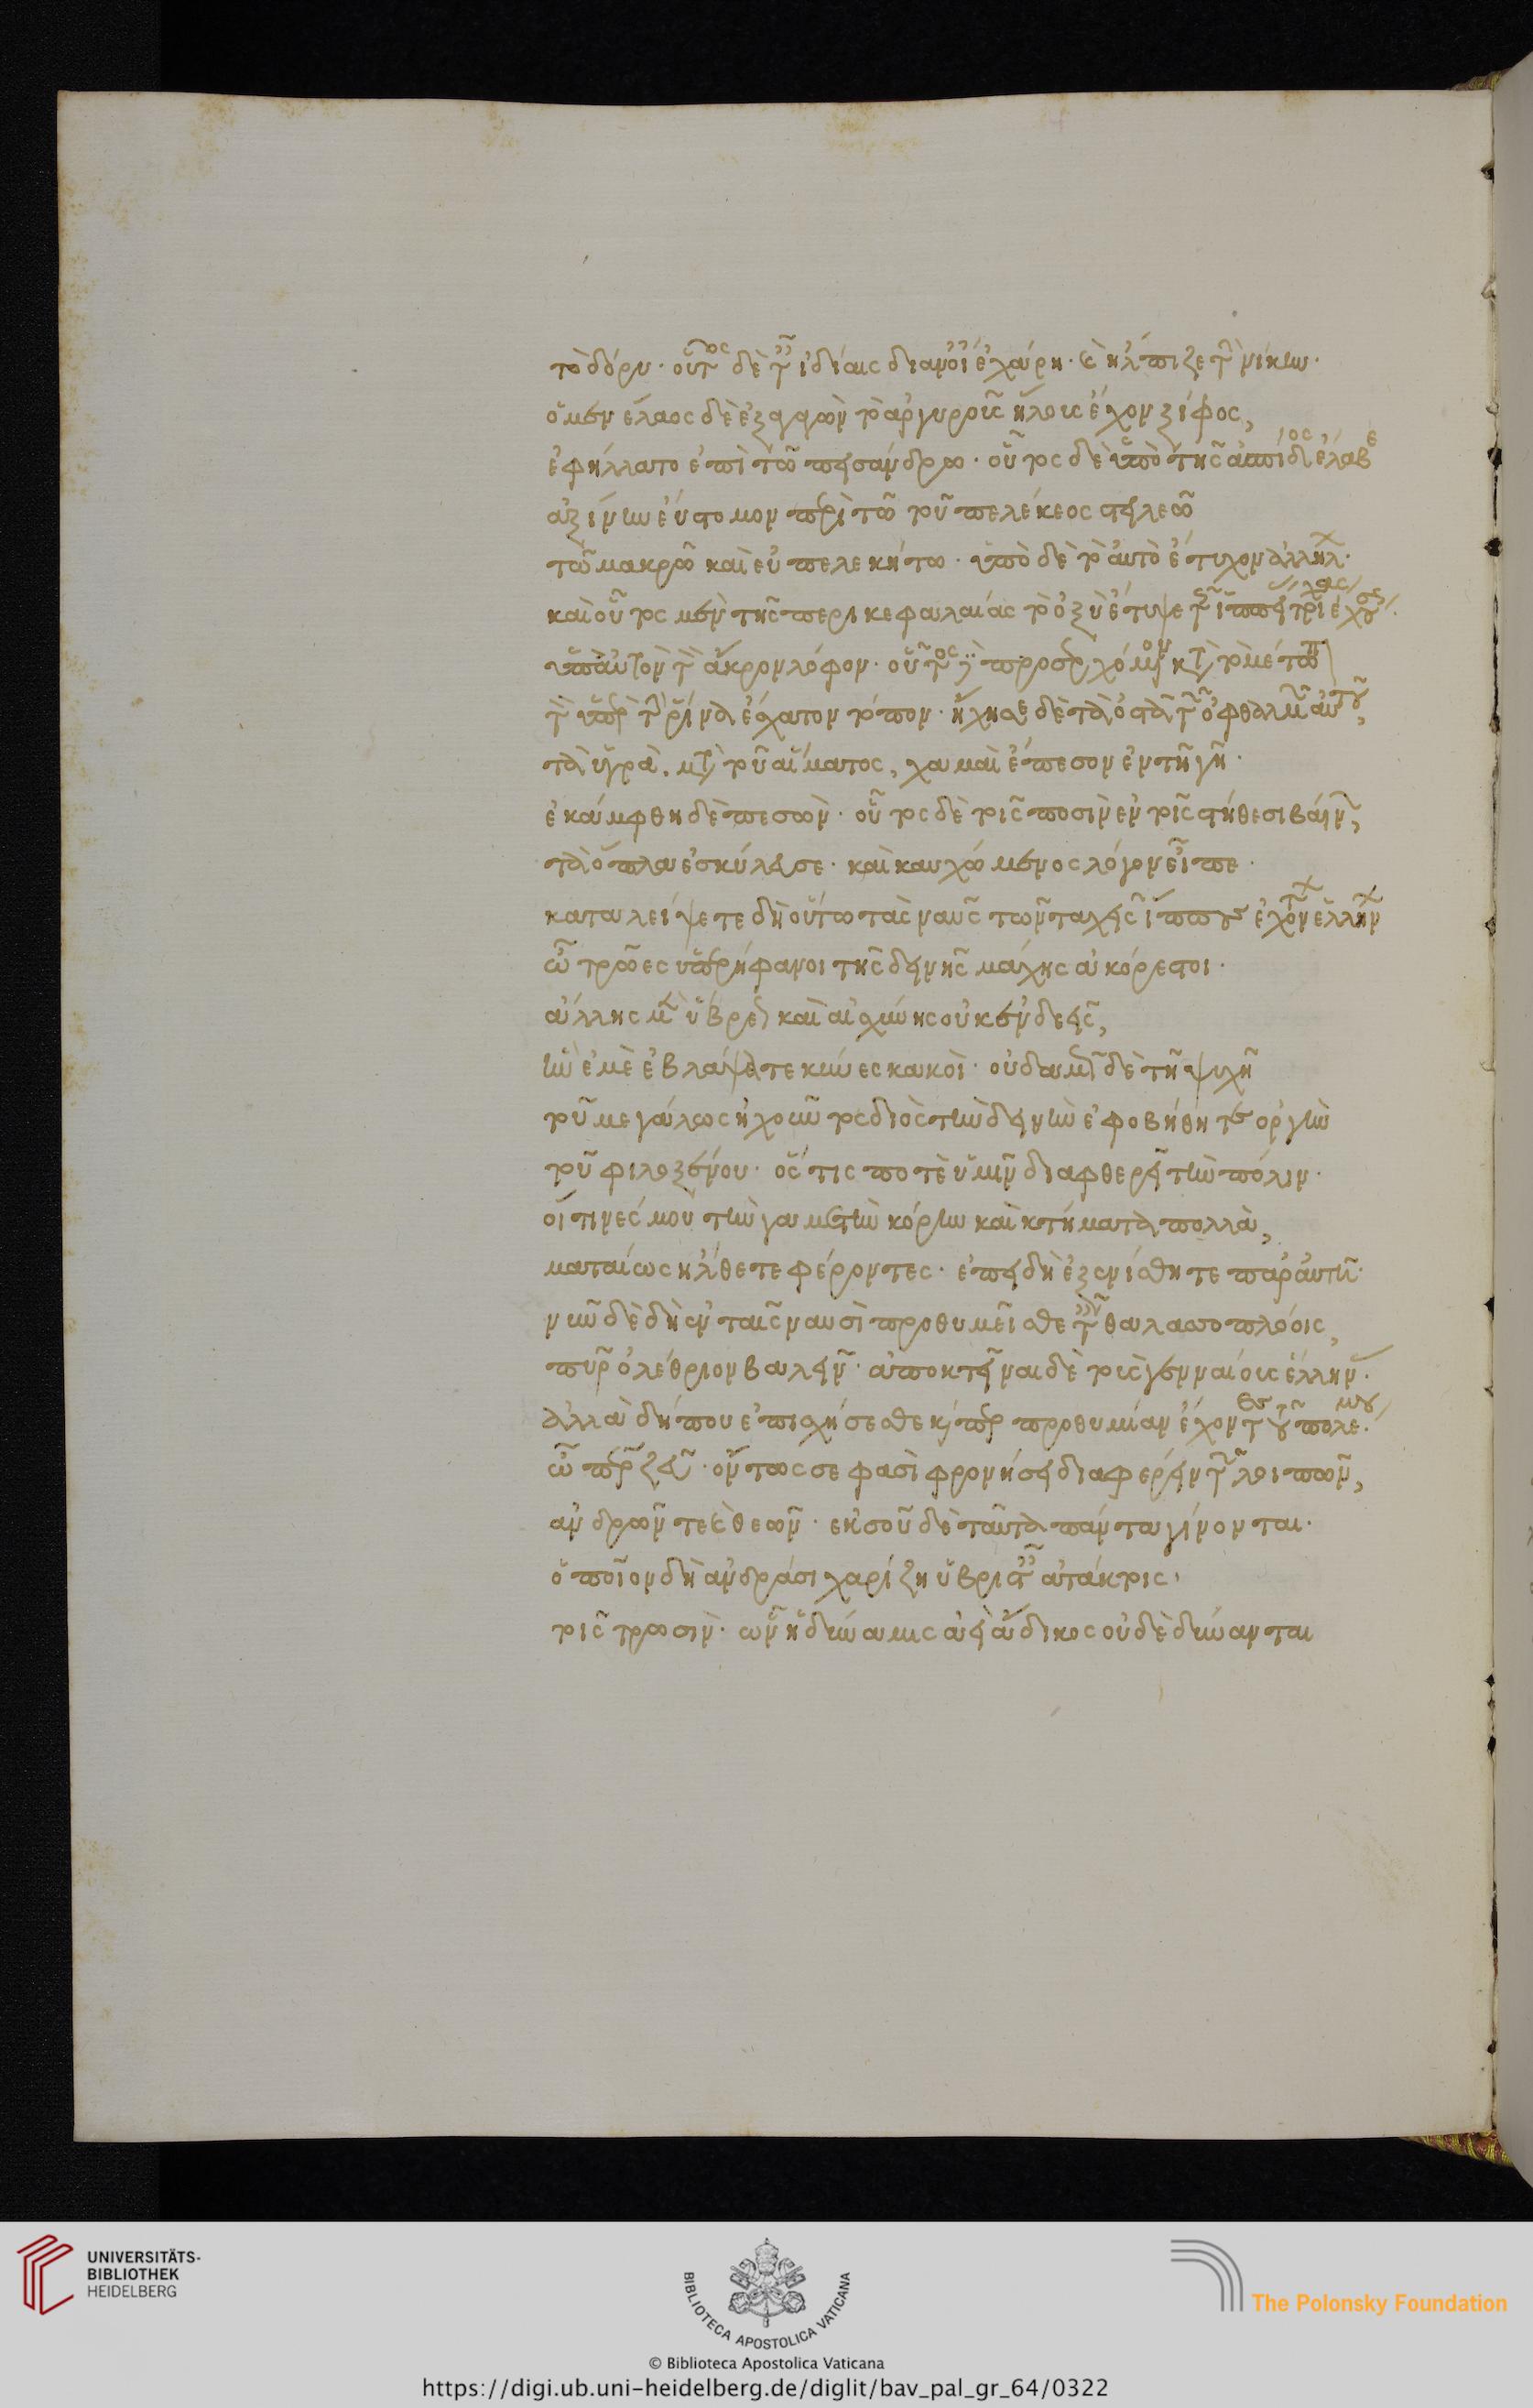 το δόρυ· οὗτος δὲ ταῖς ἰδίαις διανοίαις ἐχάρη· καὶ ἤλπιζε τὴν νίκην·
ὁ μενέλαος δὲ ἐξελὼν τὸ ἀργυροῖς ἥλοις ἔχον ξίφος,
ἐφήλλατο ἐπὶ τῶ πεισάνδρω· οὗτος δὲ ὑπὸ τῆς ἀσπίδος ἔλαβε
ἀξίνην εὔστομον περὶ τῶ τοῦ πελέκεος στελεῶ
τῶ μακρῶ καὶ εὐπελεκήτω· ὑπὸ δὲ τὸ αὐτὸ ἔτυχον ἀλλήλων·
καὶ οὗτος μὲν τῆς περικεφαλαίας τὸ ὀξὺ ἔτυψε τῆς ἱππείας τρίχας ἐχούσης·
ὑπ' αὐτὸν τὸν ἄκρον λόφον· οὗτος δὲ προσερχόμενον κατὰ τὸ μέτωπον
τὸν ὑπὲρ τὴν ῥίνα ἔσχατον τόπον· ἤχησε δὲ τὰ ὀστᾶ τῶν ὀφθαλμῶν αὐτοῦ,
τὰ ὑγρὰ. μετὰ τοῦ αἵματος, χαμαὶ ἔπεσον ἐν τῆ γῆ·
ἐκάμφθη δὲ πεσὼν· οὗτος δὲ τοῖς ποσὶν ἐν τοῖς στήθεσι βαίνων,
τὰ ὅπλα ἐσκύλευσε· καὶ καυχώμενος λόγον εἶπε·
καταλείψετε δὴ οὕτω τὰς ναῦς τῶν ταχεῖς ἵππους ἐχόντων ἑλλήνων
ὦ τρῶες ὑπερήφανοι τῆς δεινῆς μάχης ἀκόρεστοι·
ἄλλης μὲν ὕβρεως καὶ αἰσχύνης οὐκ ἐνδεεῖς,
ἣν ἐμὲ ἐβλάψατε κύνες κακοὶ· οὐδαμῶς δὲ τῆ ψυχῆ
τοῦ μεγάλως ἠχοῦντος διὸς τὴν δεινὴν ἐφοβήθητε ὀργὴν
τοῦ φιλοξένου· ὅς τις ποτὲ ὑμῶν διαφθερεῖ τὴν πόλιν·
οἵτινές μου τὴν γαμετὴν κόρην καὶ κτήματα πολλὰ,
ματαίως ἤλθετε φέροντες· ἐπειδὴ ἐξενίσθητε παρ' αὐτῆ·
νῦν δὲ δὴ ἐν ταῖς ναυσὶ προθυμεῖσθε ταῖς θαλασσοπλόοις,
πῦρ ὀλέθριον βαλεῖν· ἀποκτεῖναι δὲ τοὺς γενναίους ἕλληνας·
ἀλλὰ δήπου ἐπισχήσεσθε καίπερ προθυμίαν ἔχοντες τοῦ πολέμου·
ὦ πάτερ ζεῦ· ὄντως σε φασὶ φρονήσει διαφέρειν τῶν λοιπῶν,
ἀνδρῶν τε καὶ θεῶν· ἐκ σοῦ δὲ ταῦτα πάντα γίνονται·
ὁποῖον δὴ ἀνδράσι χαρίζη ὑβρισταῖς ἀτάκτοις·
τοῖς τρωσὶν· ὧν ἡ δύναμις ἀεὶ ἄδικος οὐδὲ δύνανται
UNIVERSITÄTS-
BIBLIOTHEK
HEIDELBERG
BIBLIOTECA APOSTOLICA VATICANA
The Polonsky Foundation
© Biblioteca Apostolica Vaticana
https://digi.ub.uni-heidelberg.de/diglit/bav_pal_gr_64/0322